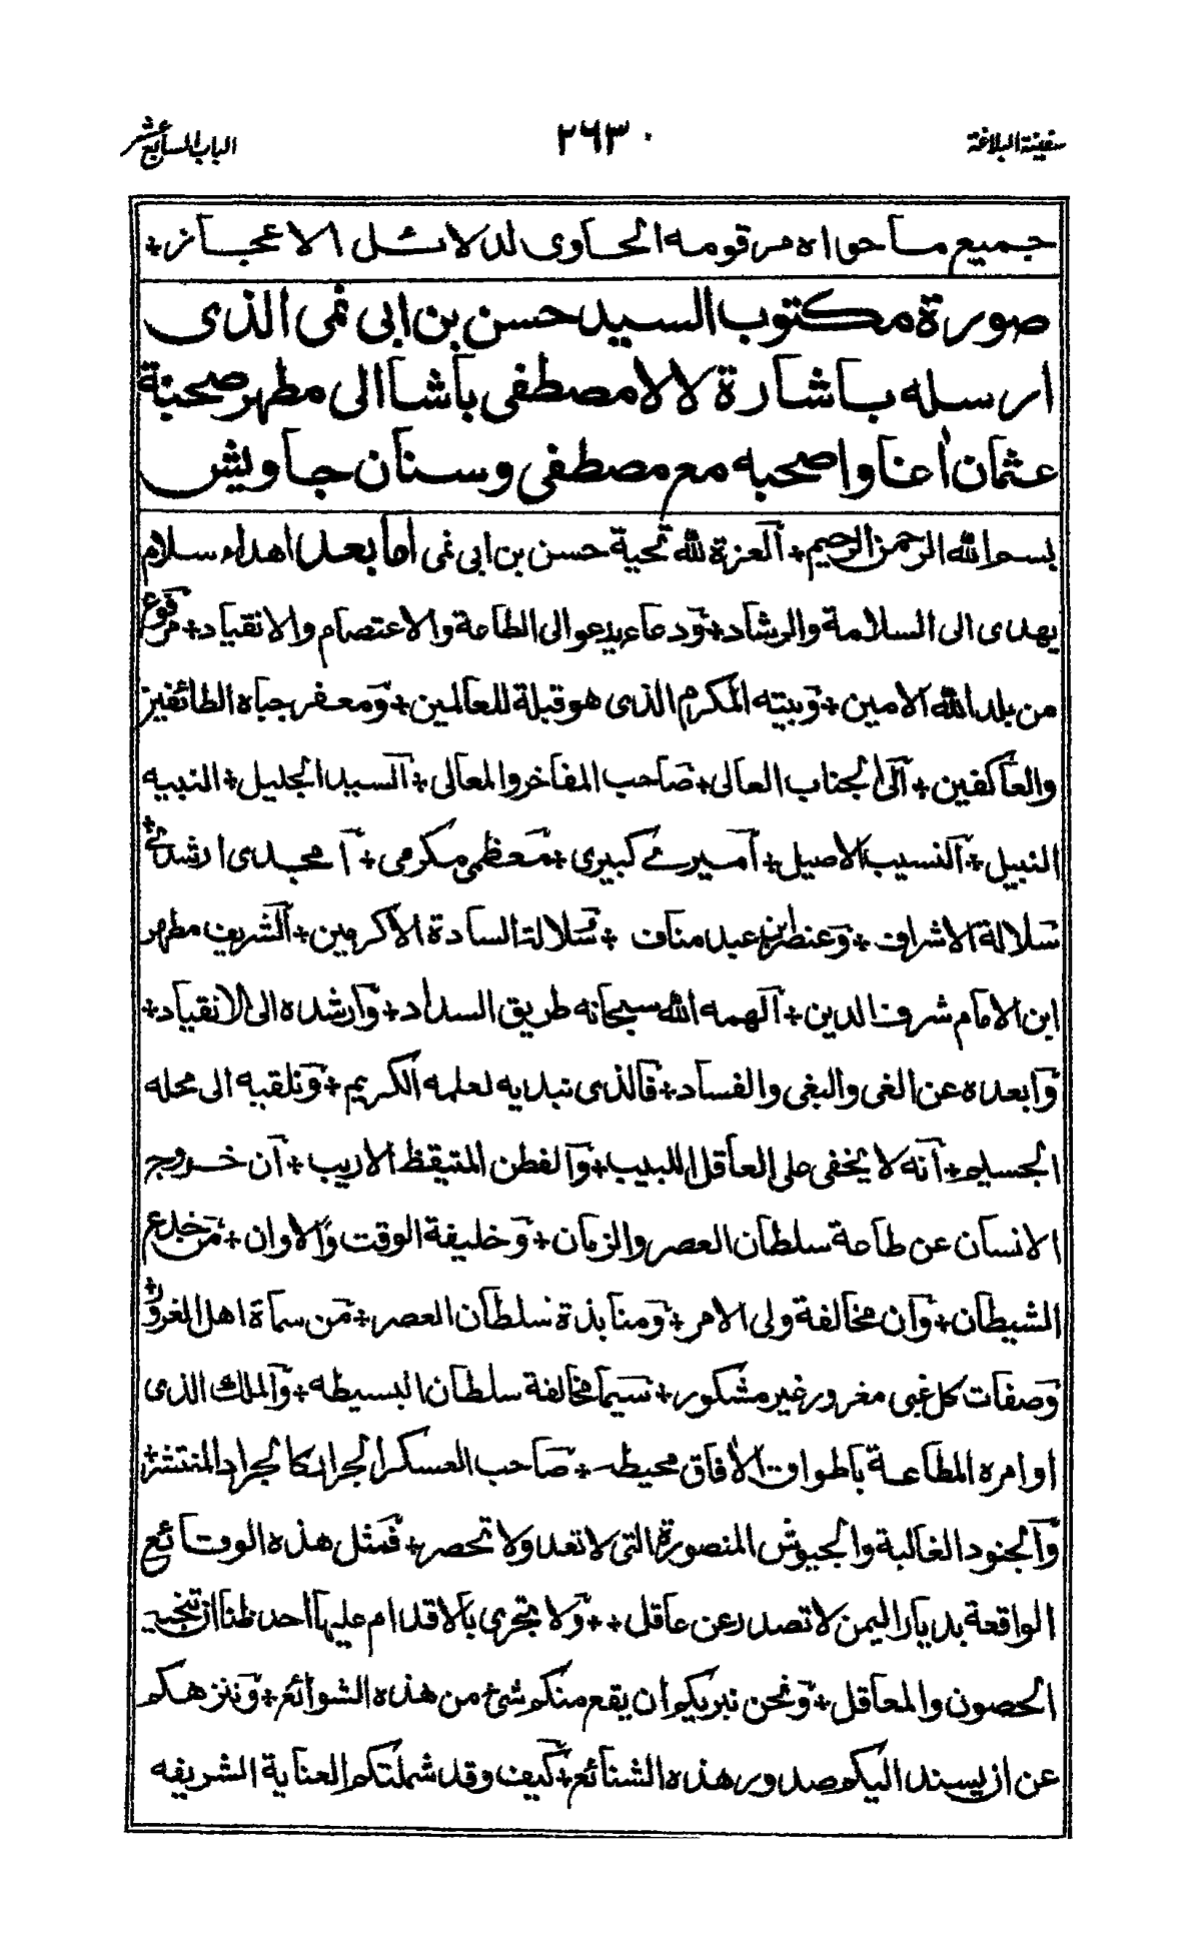 سفينة البلاغة ٢٦٣٠ الباب السابع عشر
جميع ما حواه مرقومه الحاوى لدلائل الاعجاز+
صورة مكتوب السيد حسن بن ابى نمى الذى
ارسله باشارة لالا مصطفى باشا الى مطهر صحبة
عثمان اغا واصحبه مع مصطفى وسنان جاويش
بسم الله الرحمن الرحيم+ العزة لله تحية حسن بن ابى نمى اما بعد اهداء سلام
يهدى الى السلامة والرشاد+ ودعاء يدعو الى الطاعة والاعتصام والانقياد+ مرفوع
من بلد الله الامين+ وبيته المكرم الذى هو قبلة للعالمين+ ومعفر جباه الطائفين
والعاكفين+ الى الجناب العالى+ صاحب المفاخر والمعالى+ السيد الجليل+ النبيه
النبيل+ النسيب الاصيل+ اميرى كبيرى+ معظمى مكرمى+ امجدى ارشدى+
سلالة الاشراف+ وعنصر بن عبد مناف+ سلالة السادة الاكرمين+ الشريف مطهر
ابن الامام شرف الدين+ الهمه الله سبحانه طريق السداد+ وارشده الى الانقياد+
وابعده عن الغى والبغى والفساد+ فالذى نبديه لعلمه الكريم+ ونلقيه الى محله
الجسيم+ انه لا يخفى على العاقل اللبيب+ والفطن المتيقظ الاريب+ ان خروج
الانسان عن طاعة سلطان العصر والزمان+ وخليفة الوقت والاوان+ من خدع
الشيطان+ وان مخالفة ولى الامر+ ومنابذة سلطان العصر+ من سماة اهل الغرور+
وصفات كل غبى مغرور غير مشكور+ سيما مخالفة سلطان البسيطه+ والملك الذى
اوامره المطاعة باطواق الآفاق محيطه+ صاحب العسكر الجرار كالجراد المنتشر
والجنود الغالبة والجيوش المنصورة التى لا تعد ولا تحصر+ فمثل هذه الوقائع
الواقعة بديار اليمن لا تصدر عن عاقل++ ولا يتجرى بالاقدام عليها احد ظنا ان تنجيه
الحصون والمعاقل+ ونحن نبريكم ان يقع منكم شئ من هذه الشوائع+ وننزهكم
عن ان يسند اليكم صدور هذه الشنائع+ كيف وقد شملتكم العناية الشريفه